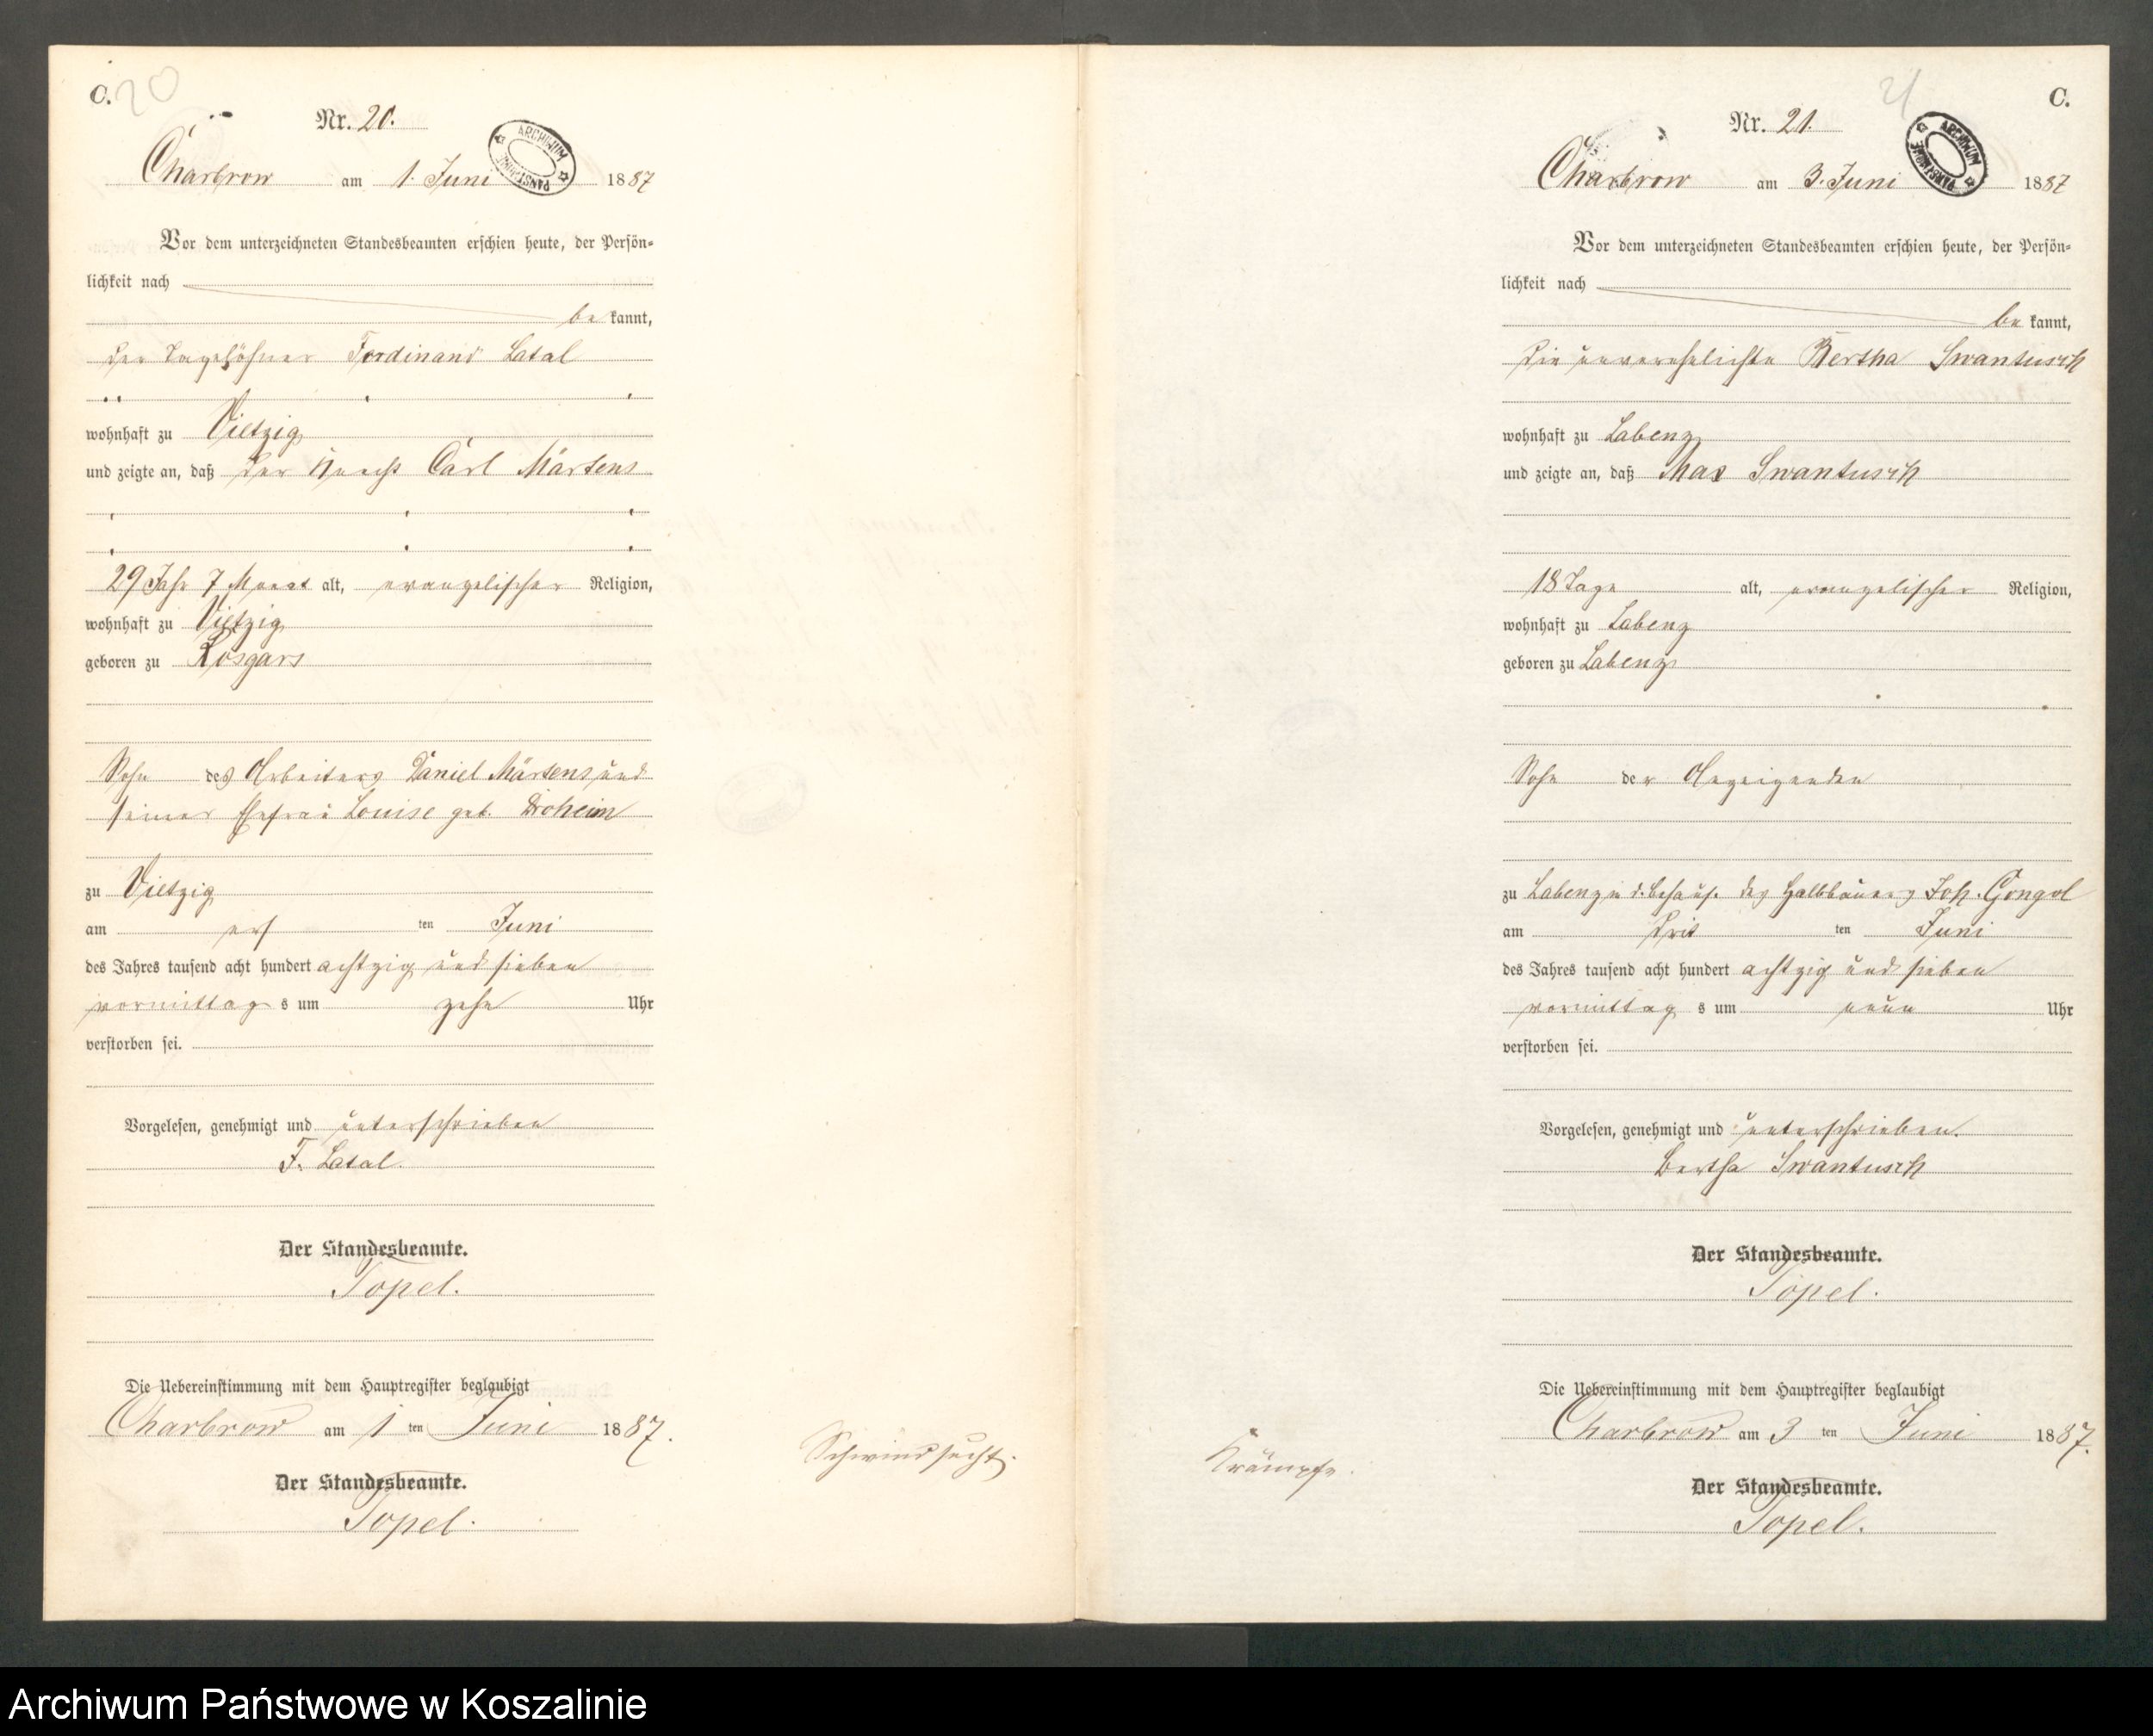 C.
20
Nr. 20.
ARCHIWUM PAŃSTWOWE
Charbrow am 1. Juni 1887
Vor dem unterzeichneten Standesbeamten erschien heute, der Persön-
lichkeit nach
be kannt,
der Tagelöhner Ferdinand Latal
wohnhaft zu Vietzig
und zeigte an, daß der Knecht Carl Märtens
29 Jahr 7 Monat alt, evangelischer Religion,
wohnhaft zu Vietzig
geboren zu Rosgars
Sohn des Arbeiters Daniel Märtens und
seiner Ehefrau Louise geb.
zu Vietzig
am ers ten Juni
des Jahres tausend acht hundert achtzig und sieben
vormittag s um zehn Uhr
verstorben sei.
Vorgelesen, genehmigt und unterschrieben
F. Latal.
Der Standesbeamte.
Topel.
Die Uebereinstimmung mit dem Hauptregister beglaubigt
Charbrow am 1 ten Juni 1887.
Der Standesbeamte.
Topel.
Schwindsucht.
21
C.
Nr. 21.
ARCHIWUM PAŃSTWOWE
Charbrow am 3. Juni 1887
Vor dem unterzeichneten Standesbeamten erschien heute, der Persön-
lichkeit nach
be kannt,
die unverehelichte Bertha Swantusch
wohnhaft zu Labenz
und zeigte an, daß Max Swantusch
18 Tage alt, evangelischer Religion,
wohnhaft zu Labenz
geboren zu Labenz
Sohn der Anzeigenden
zu Labenz in d. Behaus. des Halbbauers Joh. Gongol
am drit ten Juni
des Jahres tausend acht hundert achtzig und sieben
vormittag s um neun Uhr
verstorben sei.
Vorgelesen, genehmigt und unterschrieben.
Bertha Swantusch
Der Standesbeamte.
Topel.
Die Uebereinstimmung mit dem Hauptregister beglaubigt
Charbrow am 3 ten Juni 1887.
Der Standesbeamte.
Topel.
Krämpfe.
Archiwum Państwowe w Koszalinie